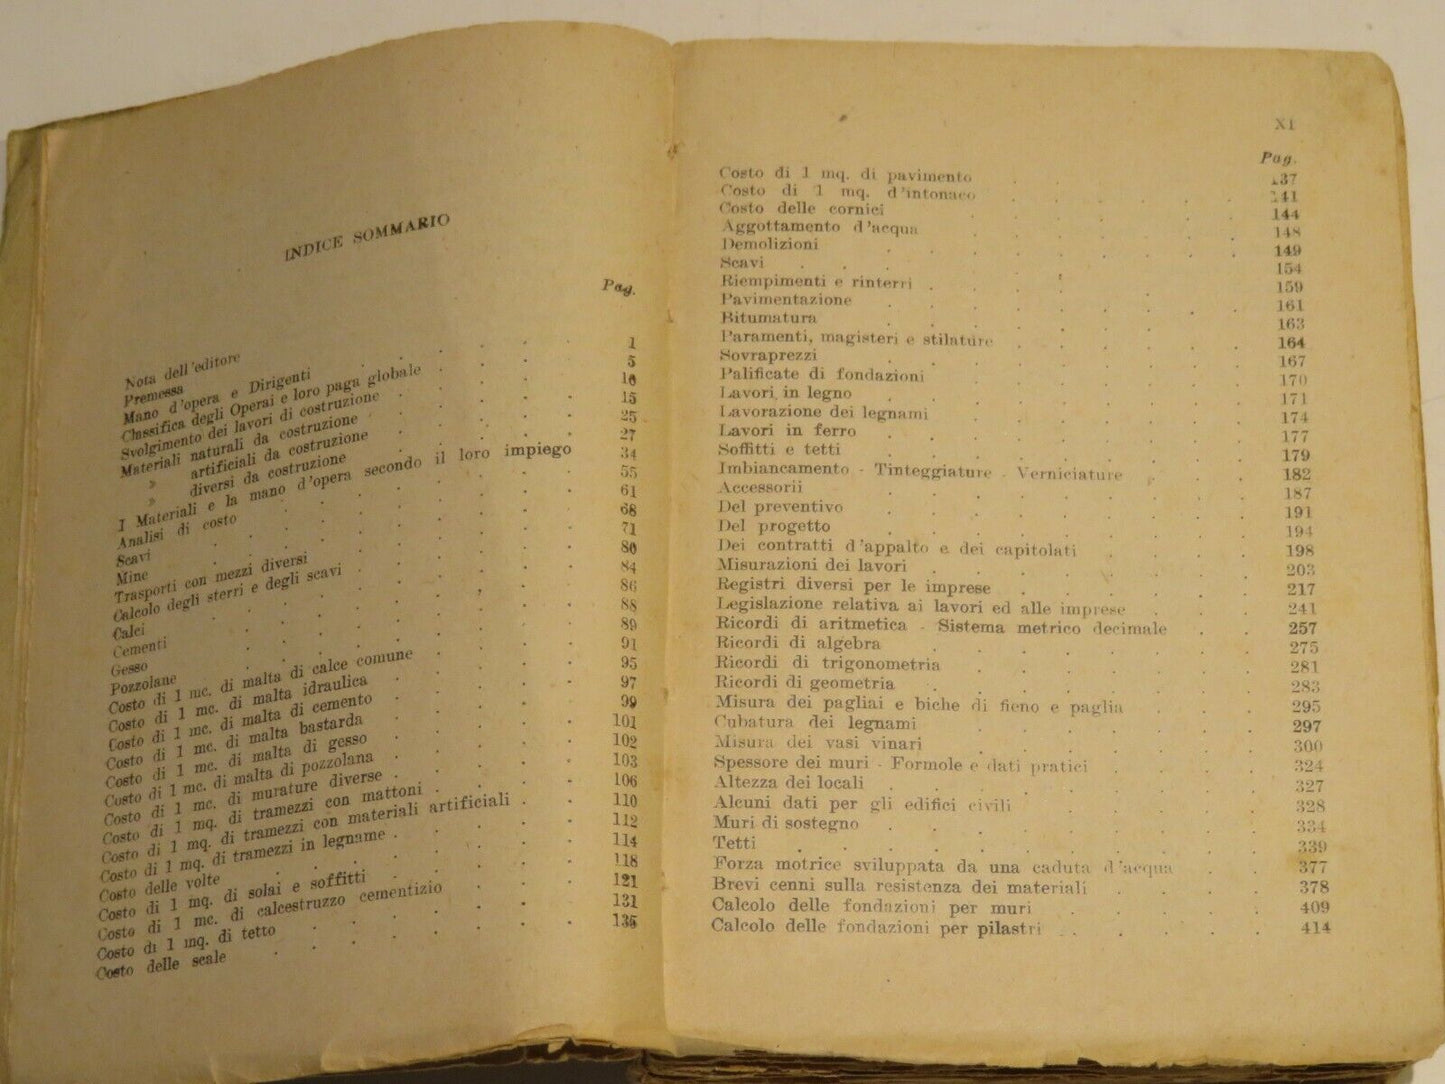 INDICE SOMMARIO
Pag.
Nota dell'editore
Premessa
Mano d'opera e Dirigenti . . . . . 1
Classifica degli Operai e loro paga globale . . . 5
Svolgimento dei lavori di costruzione . . . . 10
Materiali naturali da costruzione . . . . 15
» artificiali da costruzione . . . . 25
» diversi da costruzione . . . . 27
I Materiali e la mano d'opera secondo il loro impiego 34
Analisi di costo . . . . . . 55
Scavi . . . . . . . 61
Mine . . . . . . . 68
Trasporti con mezzi diversi . . . . . 71
Calcolo degli sterri e degli scavi . . . . 80
Calci . . . . . . . 84
Cementi . . . . . . . 86
Gesso . . . . . . . 88
Pozzolane . . . . . . . 89
Costo di 1 mc. di malta di calce comune . . . 91
Costo di 1 mc. di malta idraulica . . . . 95
Costo di 1 mc. di malta di cemento . . . . 97
Costo di 1 mc. di malta bastarda . . . . 99
Costo di 1 mc. di malta di gesso . . . . 101
Costo di 1 mc. di malta di pozzolana . . . . 102
Costo di 1 mc. di murature diverse . . . . 103
Costo di 1 mq. di tramezzi con mattoni . . . 106
Costo di 1 mq. di tramezzi con materiali artificiali . . 110
Costo di 1 mq. di tramezzi in legname . . . . 112
Costo delle volte . . . . . . 114
Costo di 1 mq. di solai e soffitti . . . . 118
Costo di 1 mc. di calcestruzzo cementizio . . . 121
Costo di 1 mq. di tetto . . . . . 131
Costo delle scale . . . . . . 135
XI
Pag.
Costo di 1 mq. di pavimento . . . . . 137
Costo di 1 mq. d'intonaco . . . . . 141
Costo delle cornici . . . . . . 144
Aggottamento d'acqua . . . . . . 148
Demolizioni . . . . . . . 149
Scavi . . . . . . . . 154
Riempimenti e rinterri . . . . . . 159
Pavimentazione . . . . . . . 161
Bitumatura . . . . . . . 163
Paramenti, magisteri e stilature . . . . . 164
Sovraprezzi . . . . . . . 167
Palificate di fondazioni . . . . . . 170
Lavori in legno . . . . . . . 171
Lavorazione dei legnami . . . . . . 174
Lavori in ferro . . . . . . . 177
Soffitti e tetti . . . . . . . 179
Imbiancamento - Tinteggiature - Verniciature . . . 182
Accessorii . . . . . . . 187
Del preventivo . . . . . . . 191
Del progetto . . . . . . . 194
Dei contratti d'appalto e dei capitolati . . . 198
Misurazioni dei lavori . . . . . . 203
Registri diversi per le imprese . . . . . 217
Legislazione relativa ai lavori ed alle imprese . . . 241
Ricordi di aritmetica - Sistema metrico decimale . . 257
Ricordi di algebra . . . . . . 275
Ricordi di trigonometria . . . . . . 281
Ricordi di geometria . . . . . . 283
Misura dei pagliai e biche di fieno e paglia . . . 295
Cubatura dei legnami . . . . . . 297
Misura dei vasi vinari . . . . . . 300
Spessore dei muri - Formole e dati pratici . . . . 324
Altezza dei locali . . . . . . . 327
Alcuni dati per gli edifici civili . . . . . 328
Muri di sostegno . . . . . . . 334
Tetti . . . . . . . . 339
Forza motrice sviluppata da una caduta d'acqua . . 377
Brevi cenni sulla resistenza dei materiali . . . . 378
Calcolo delle fondazioni per muri . . . . . 409
Calcolo delle fondazioni per pilastri . . . . . 414